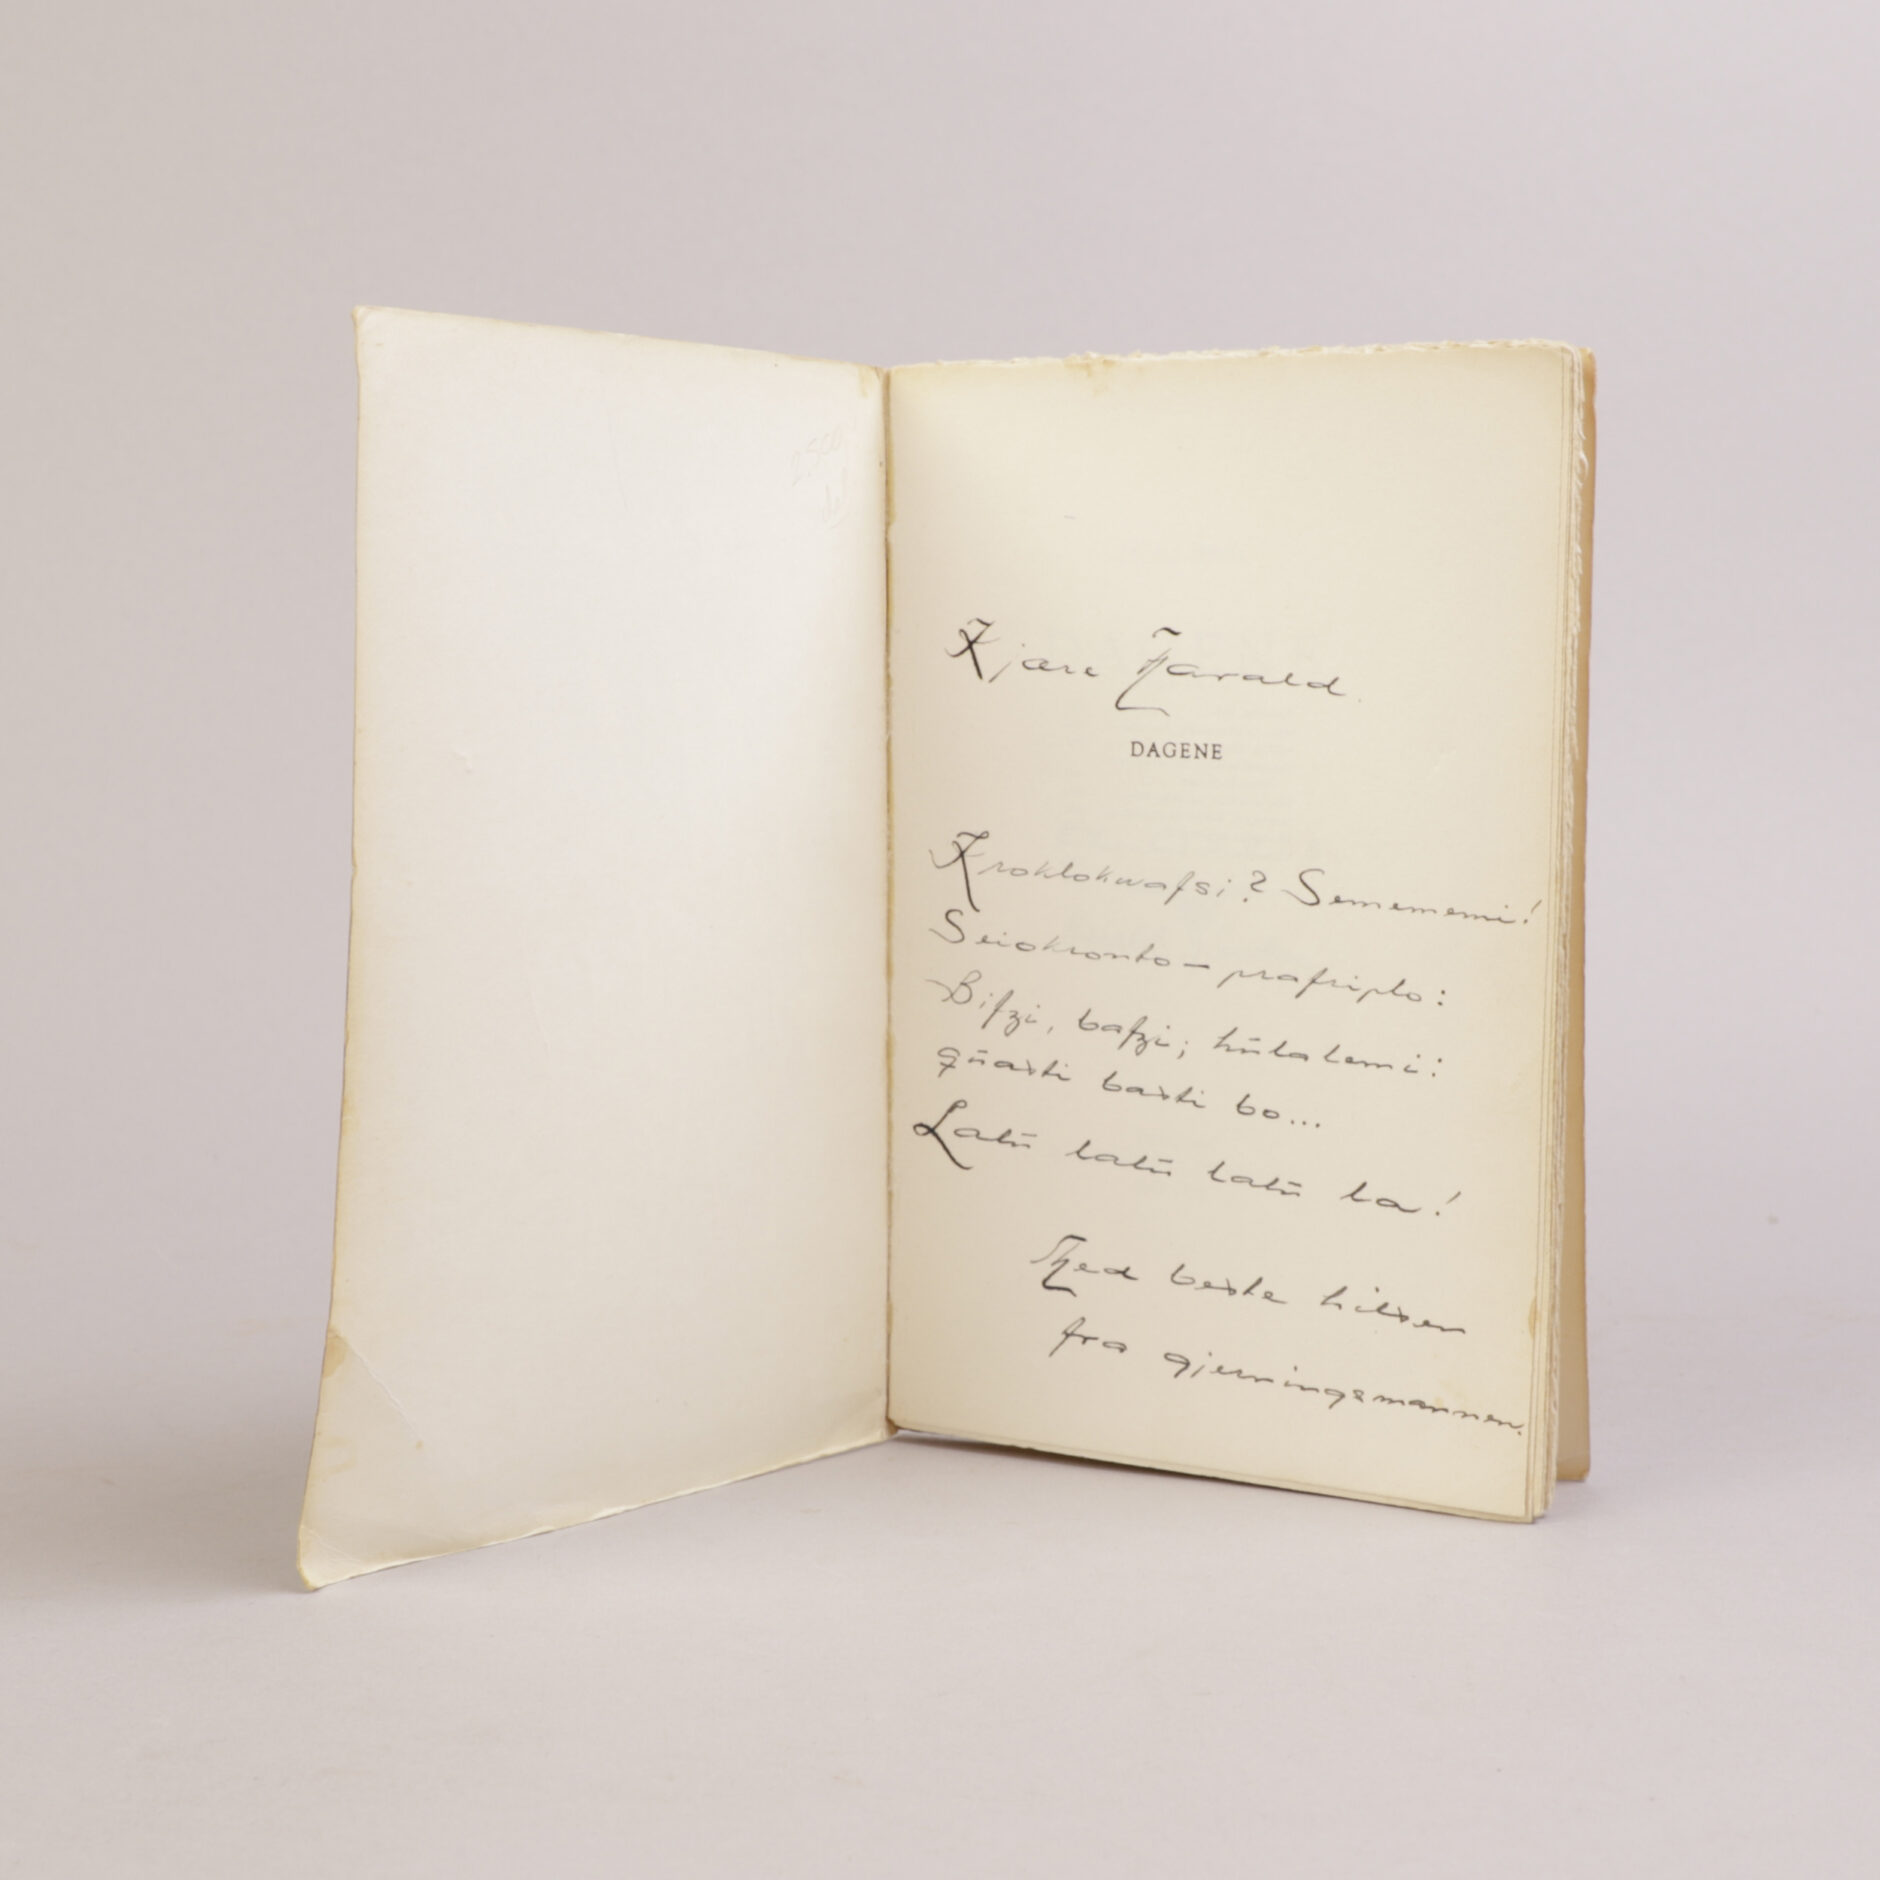 2500
Kjære Harald.
DAGENE
Kroklokwafsi? Semememi!
Seiokronto – prafriplo:
Bifzi, bafzi; hülalemi:
qüasti basti bo...
Lalü lalü lalü la!
Med beste hilsen
fra gjerningsmannen.